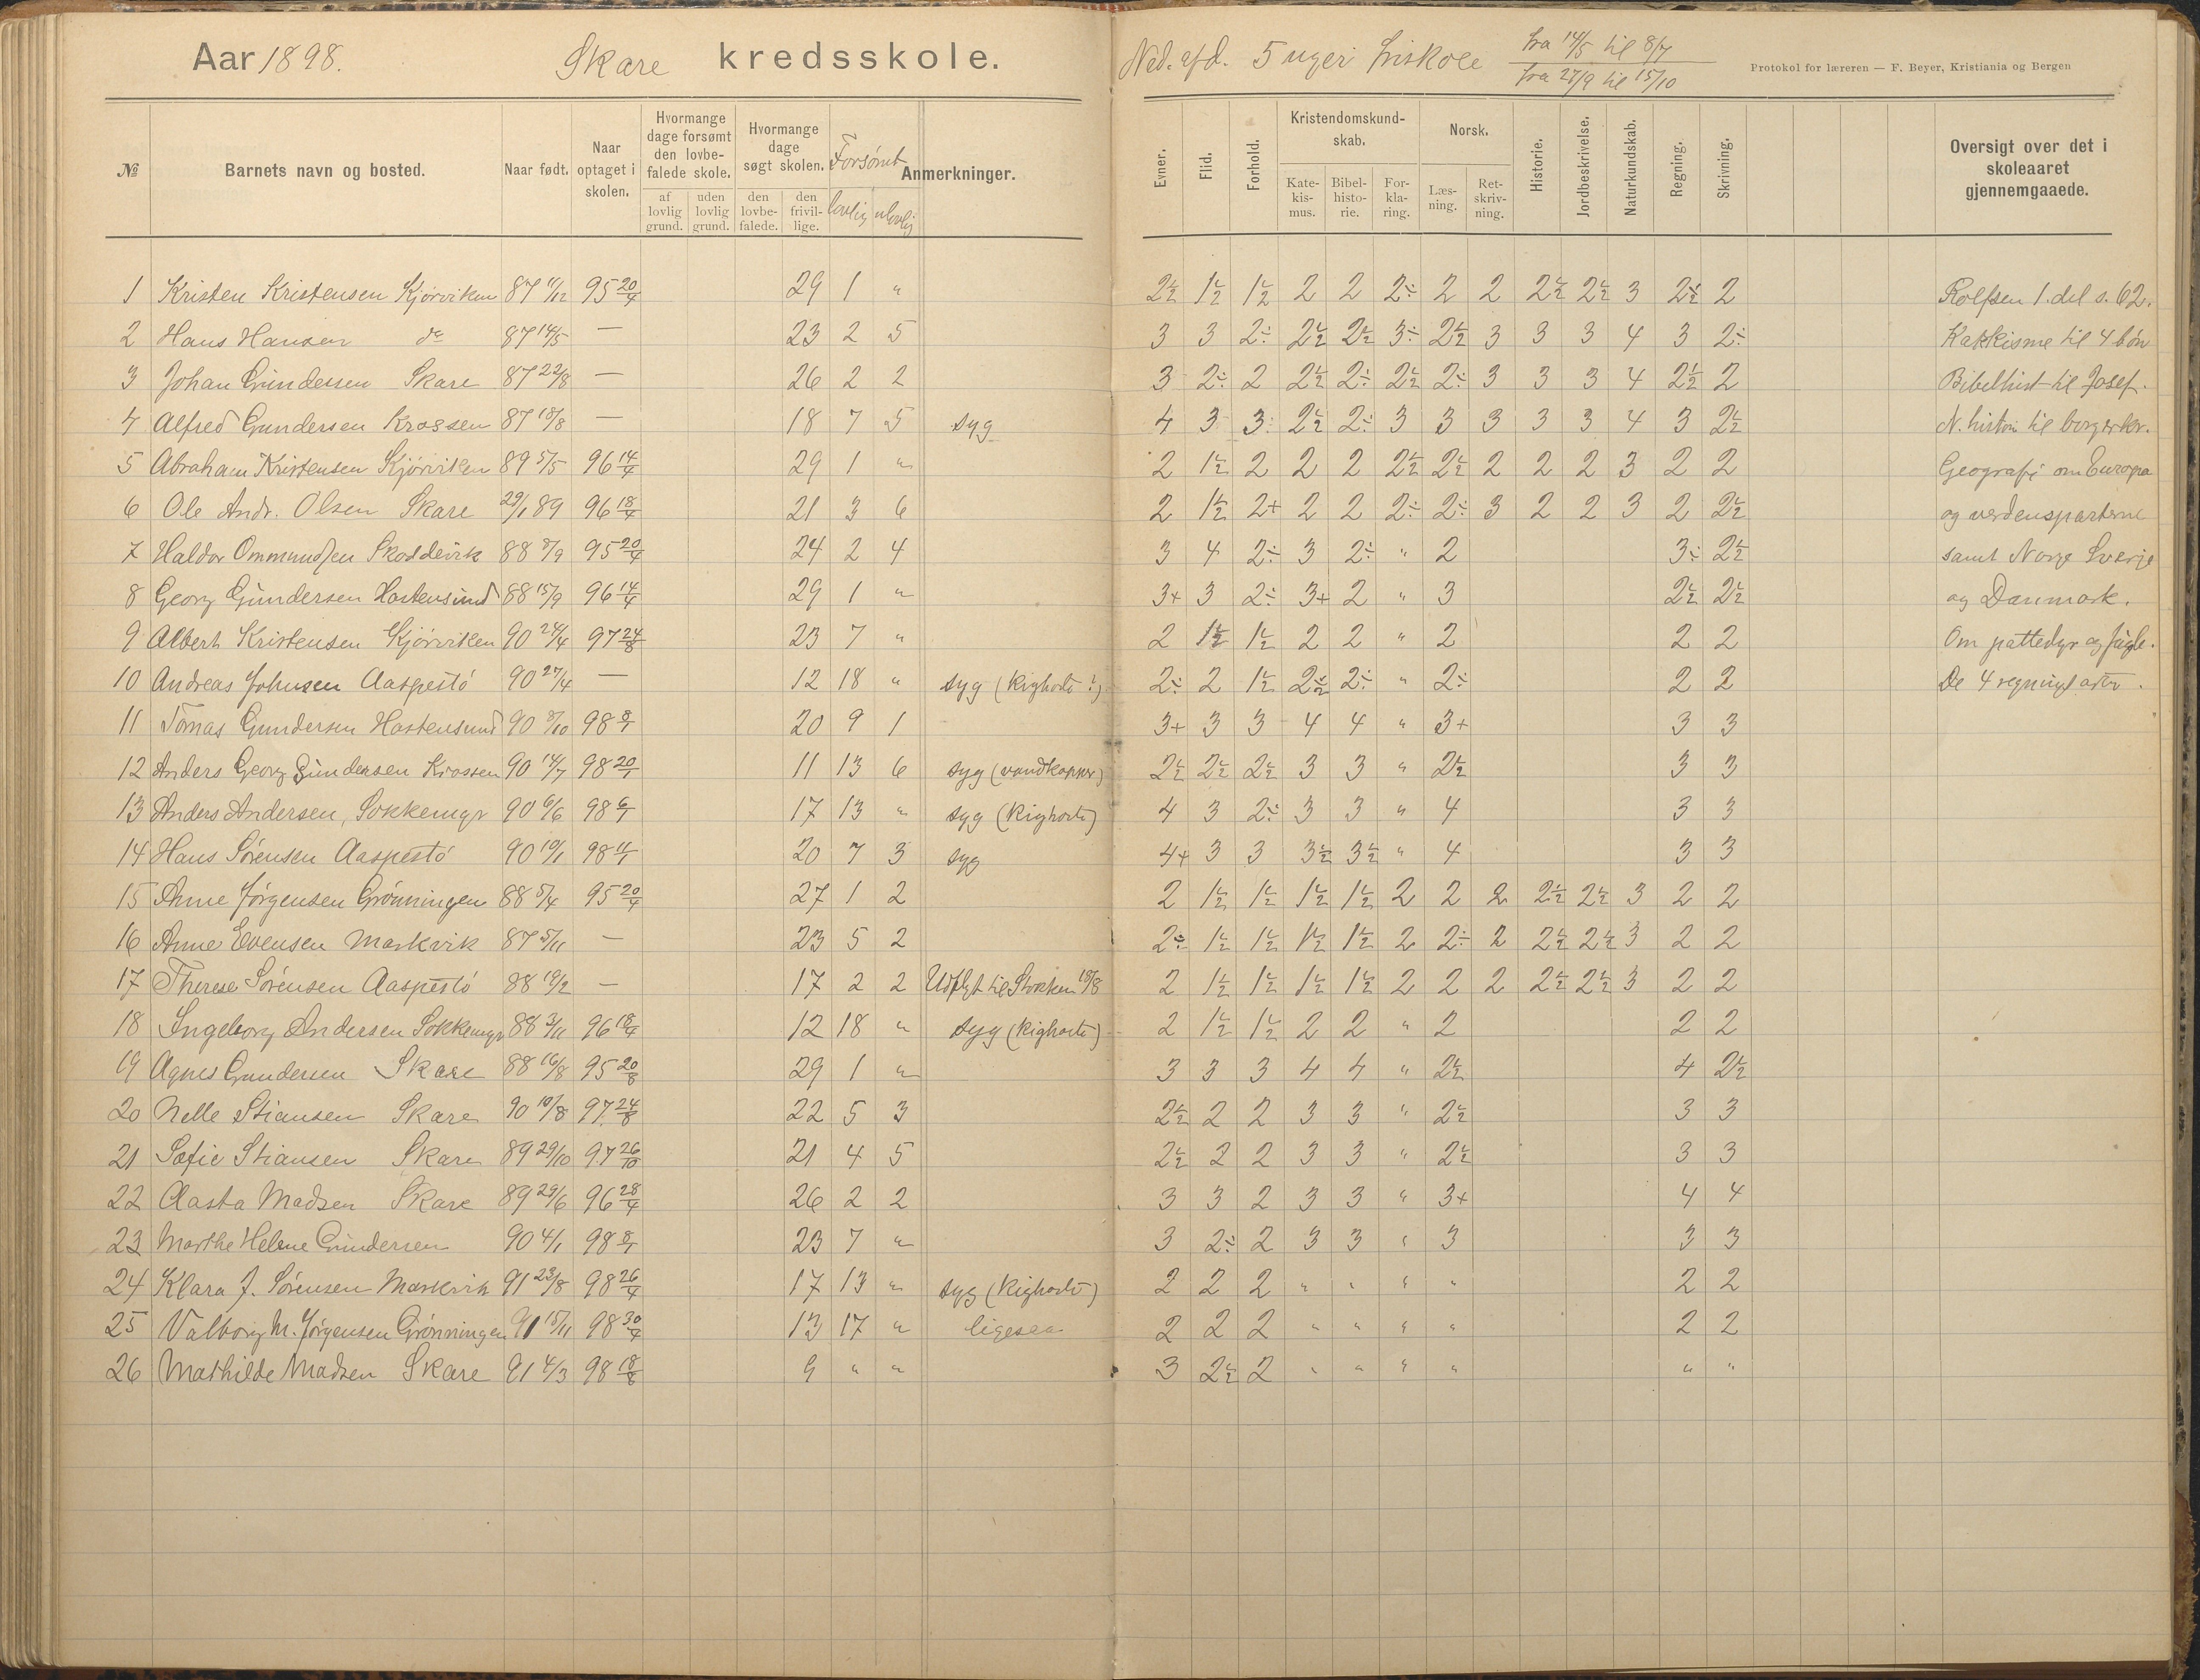 Aar 1898. Skare kredsskole.
№ Barnets navn og bosted. Naar født. Naar optaget i skolen. Hvormange dage forsømt den lovbefalede skole. af lovlig grund. uden lovlig grund. Hvormange dage søgt skolen. den lovbefalede. den frivillige. Forsømt lovlig ulovlig Anmerkninger.
1 Kristen Kristensen Kjørviken 87 11/12 95 20/4 29 1 "
2 Hans Hansen do 87 14/5 — 23 2 5
3 Johan Gundersen Skare 87 22/8 — 26 2 2
4 Alfred Gundersen Krossen 87 18/8 — 18 7 5 syg
5 Abraham Kristensen Kjørviken 89 5/5 96 14/4 29 1 "
6 Ole Andr. Olsen Skare 29/1 89 96 18/4 21 3 6
7 Haldor Ommundsen Skoddevik 88 8/9 95 20/4 24 2 4
8 Georg Gundersen Hastensund 88 15/9 96 14/4 29 1 "
9 Albert Kristensen Kjørviken 90 24/4 97 24/8 23 7 "
10 Andreas Johnsen Aaspestø 90 27/4 — 12 18 " syg (Kighoste !)
11 Tomas Gundersen Hastensund 90 8/10 98 8/1 20 9 1
12 Anders Georg Gundersen Krossen 90 14/7 98 20/1 11 13 6 syg (vandkopper)
13 Anders Andersen, Sokkemyr 90 6/6 98 6/1 17 13 " syg (Kighoste)
14 Hans Sørensen Aaspestø 90 10/1 98 11/1 20 7 3 syg
15 Anne Jørgensen Grønningen 88 5/4 95 20/4 27 1 2
16 Anne Evensen Markvik 87 5/11 — 23 5 2
17 Therese Sørensen Aaspestø 88 19/2 — 17 2 2 Udflyt til Stokken 18/8
18 Ingeborg Andersen Sokkemyr 88 3/11 96 18/4 12 18 " syg (Kighoste)
19 Agnes Gundersen Skare 88 16/8 95 20/8 29 1 "
20 Nelle Stiansen Skare 90 10/8 97 24/8 22 5 3
21 Sofie Stiansen Skare 89 29/10 97 26/10 21 4 5
22 Aasta Madsen Skare 89 29/6 96 28/4 26 2 2
23 Marthe Helene Gundersen 90 4/1 98 8/1 23 7 "
24 Klara J. Sørensen Markvik 91 23/8 98 26/4 17 13 " syg (Kighoste)
25 Valborg M. Jørgensen Grønningen 91 15/11 98 30/4 13 17 " ligesaa
26 Mathilde Madsen Skare 91 4/3 98 18/8 9 " "
Ned. afd. 5 uger friskole fra 14/5 til 8/7
fra 27/9 til 15/10
Protokol for læreren — F. Beyer, Kristiania og Bergen
Evner. Flid. Forhold. Kristendomskundskab. Katekismus. Bibelhistorie. Forklaring. Norsk. Læsning. Retskrivning. Historie. Jordbeskrivelse. Naturkundskab. Regning. Skrivning. Oversigt over det i skoleaaret gjennemgaaede.
2½ 1½ 1½ 2 2 2÷ 2 2 2½ 2½ 3 2½ 2 Rolfsen 1. del s. 62.
3 3 2÷ 2½ 2½ 3÷ 2½ 3 3 3 4 3 2÷ Katkisme til 4 bøn
3 2÷ 2 2½ 2÷ 2½ 2÷ 3 3 3 4 2½ 2 Bibelhist til Josef.
4 3 3 2½ 2÷ 3 3 3 3 3 4 3 2½ N. histori til borgerkr.
2 1½ 2 2 2 2½ 2½ 2 2 2 3 2 2 Geografi om Europa
2 1½ 2+ 2 2 2÷ 2÷ 3 2 2 3 2 2½ og verdensparterne
3 4 2÷ 3 2÷ " 2 3÷ 2½ samt Norge Sverje
3+ 3 2÷ 3+ 2 " 3 2½ 2½ og Danmark.
2 1½ 1½ 2 2 " 2 2 2 Om pattedyr og fugle.
2÷ 2 1½ 2½ 2÷ " 2÷ 2 2 De 4 regningsarter.
3+ 3 3 4 4 " 3+ 3 3
2½ 2½ 2½ 3 3 " 2½ 3 3
4 3 2÷ 3 3 " 4 3 3
4+ 3 3 3½ 3½ " 4 3 3
2 1½ 1½ 1½ 1½ 2 2 2 2½ 2½ 3 2 2
2÷ 1½ 1½ 1½ 1½ 2 2÷ 2 2½ 2½ 3 2 2
2 1½ 1½ 1½ 1½ 2 2 2 2½ 2½ 3 2 2
2 1½ 1½ 2 2 " 2 2 2
3 3 3 4 4 " 2½ 4 2½
2½ 2 2 3 3 " 2½ 3 3
2½ 2 2 3 3 " 2½ 3 3
3 3 2 3 3 " 3+ 4 4
3 2÷ 2 3 3 " 3 3 3
2 2 2 " " " " 2 2
2 2 2 " " " " 2 2
3 2½ 2 " " " " " "